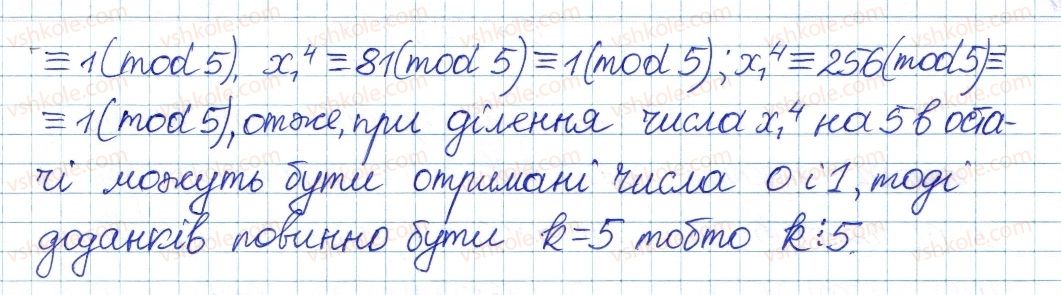 ≡ 1(mod 5), x₁⁴ ≡ 81(mod 5) ≡ 1(mod 5); x₁⁴ ≡ 256(mod 5) ≡
≡ 1(mod 5), отже, при ділення числа x₁⁴ на 5 в оста-
чі можуть бути отримані числа 0 і 1, тоді
доданків повинно бути k=5 тобто k⋮5